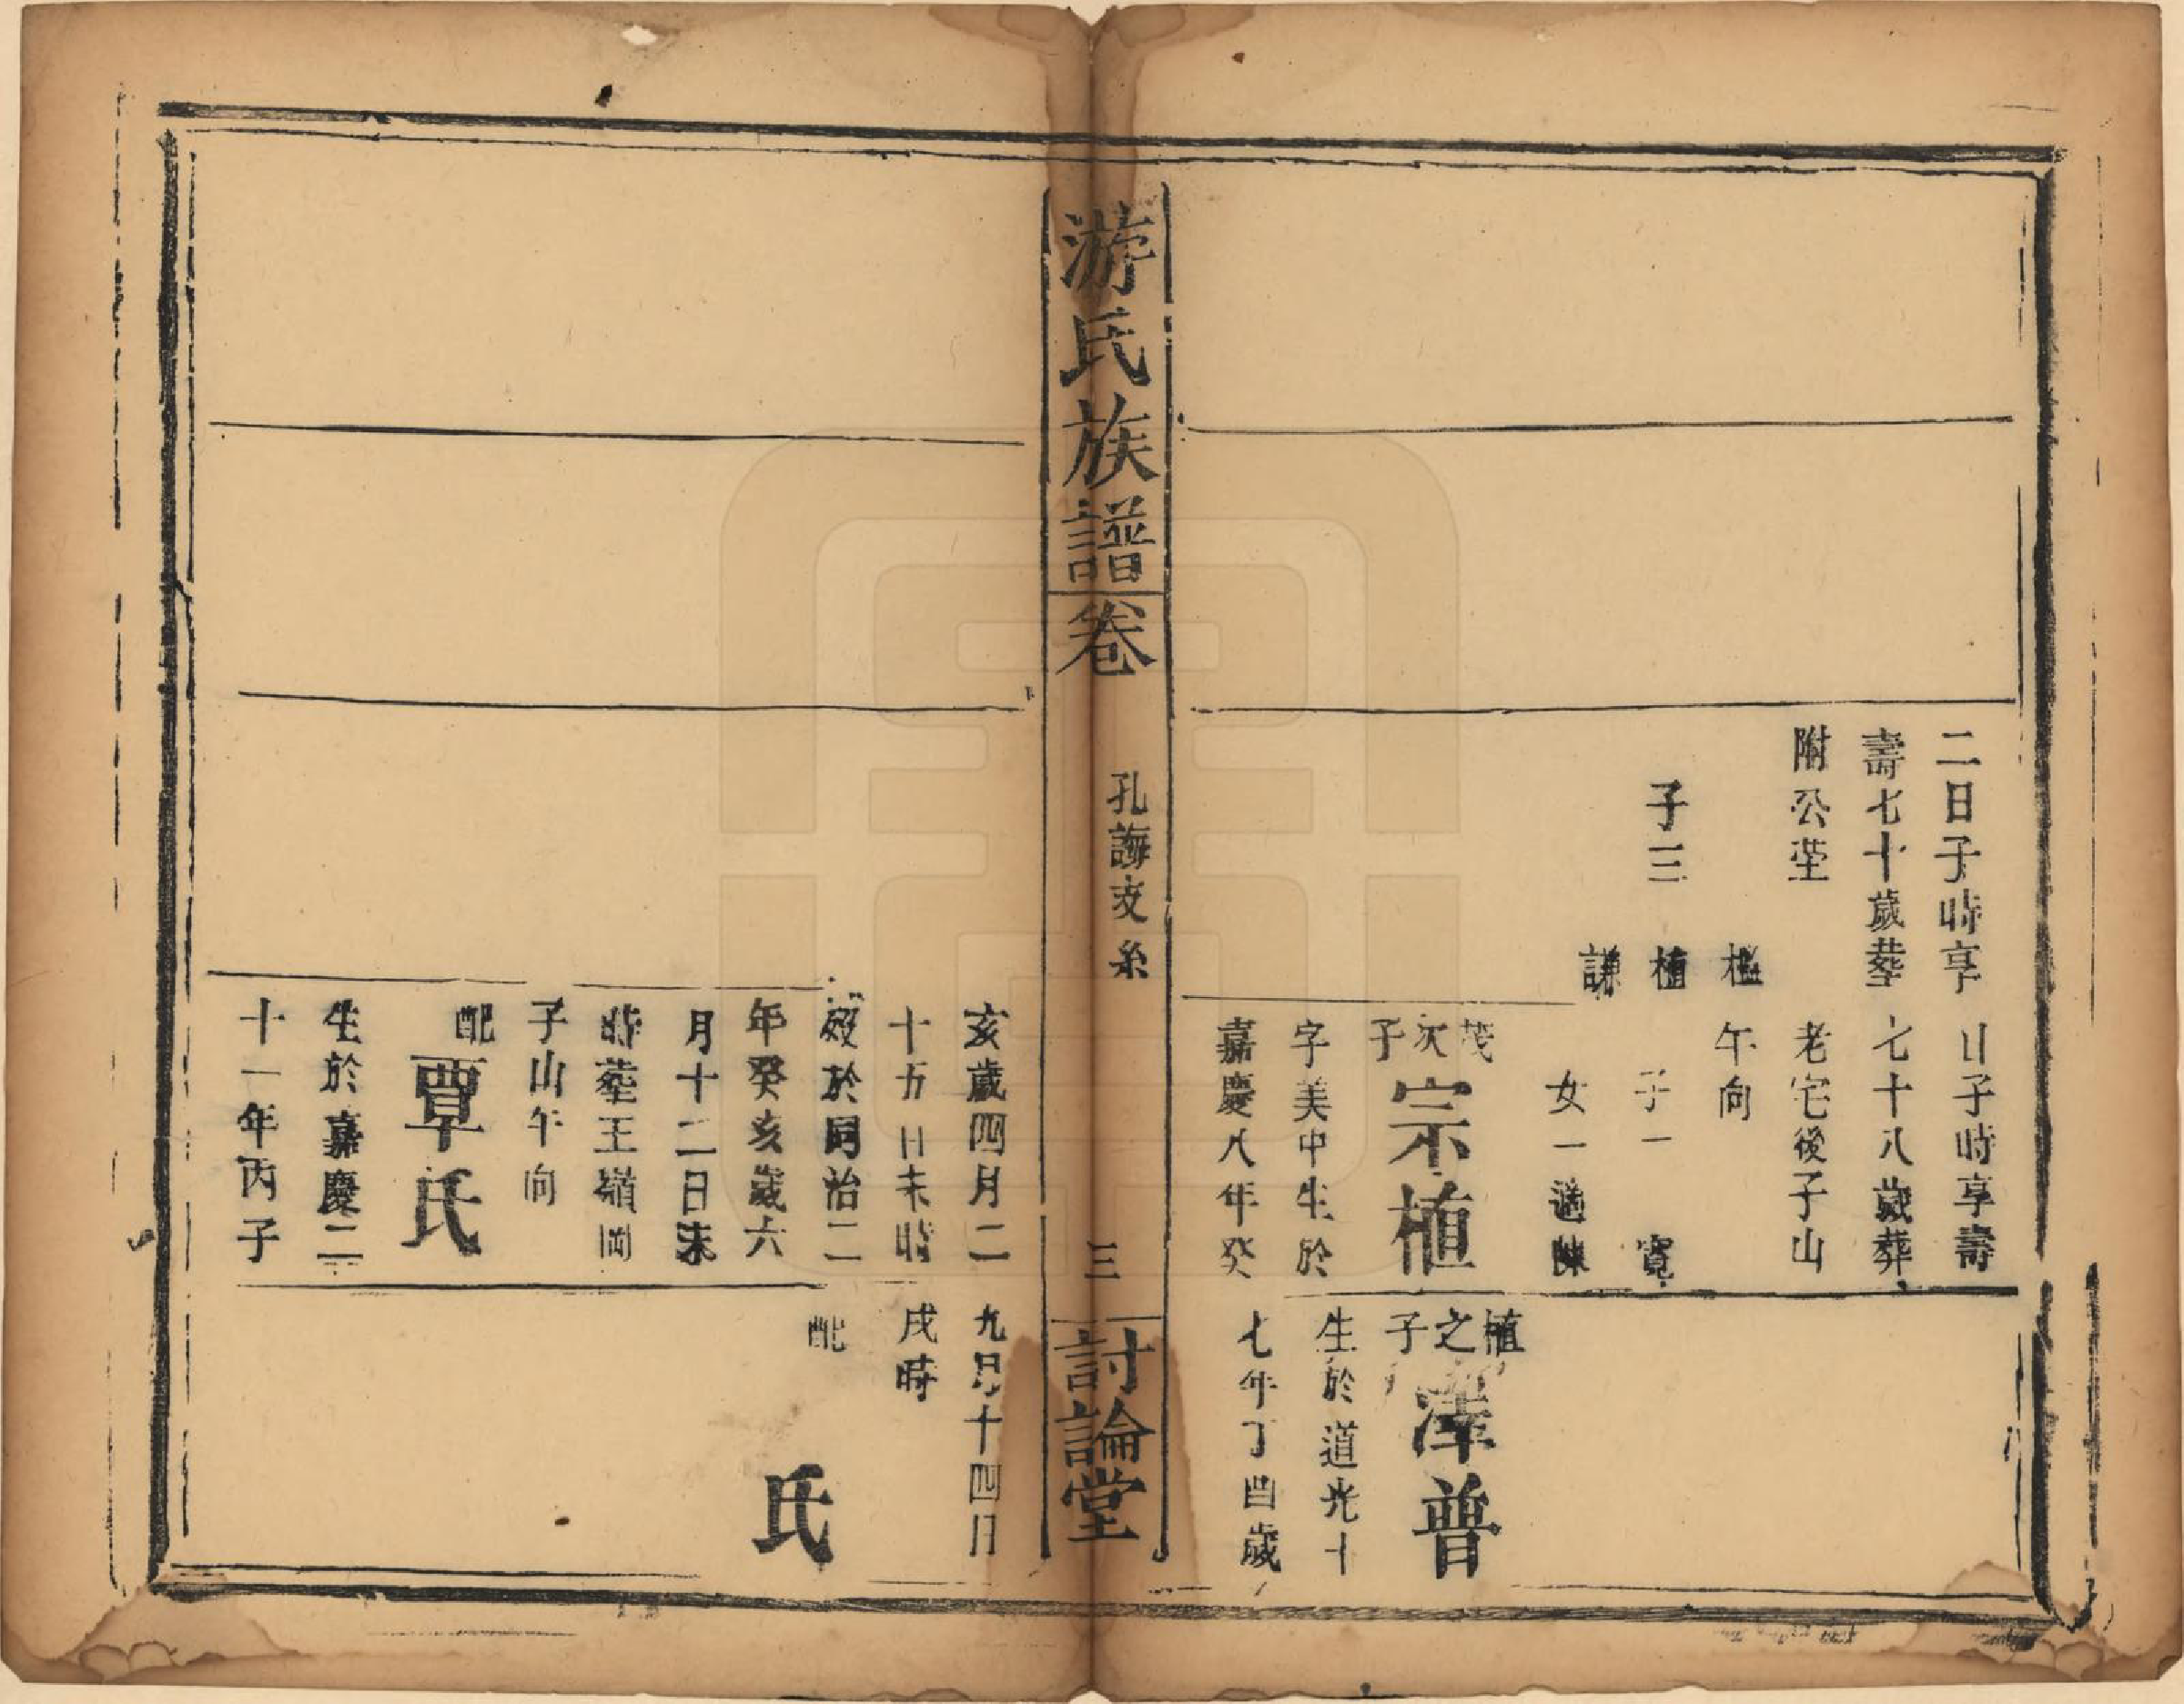 二日子時享
壽七十歲葬
附公塋
子三
楹
植
謙
日子時享壽
七十八歲葬
老宅後子山
午向
子一 寬
女一適陳
茂次子
宗植
字美中生於
嘉慶八年癸
植之子
澤普
生於道光十
七年丁酉歲
游氏族譜
卷
孔誨支系
三
討論堂
亥歲四月二
十五日未時
歿於同治二
年癸亥歲六
月十二日未
時葬王嶺岡
子山午向
配
覃氏
生於嘉慶二
十一年丙子
九月十四日
戌時
配
氏